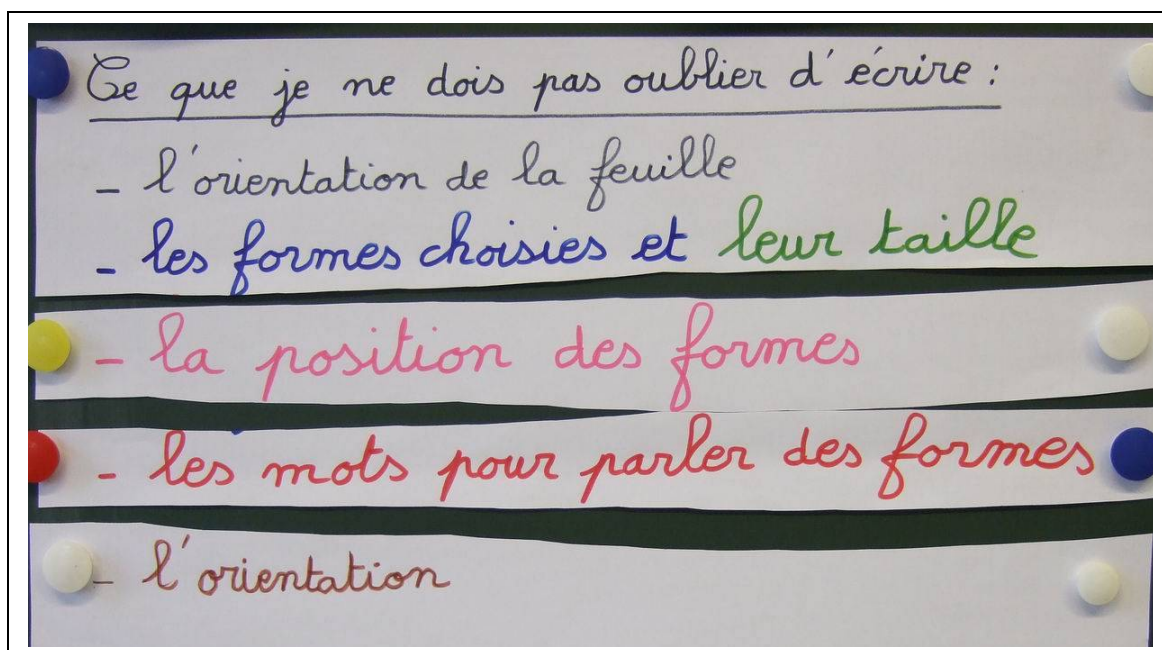 Ce que je ne dois pas oublier d'écrire :
- l'orientation de la feuille
- les formes choisies et leur taille
- la position des formes
- les mots pour parler des formes
- l'orientation